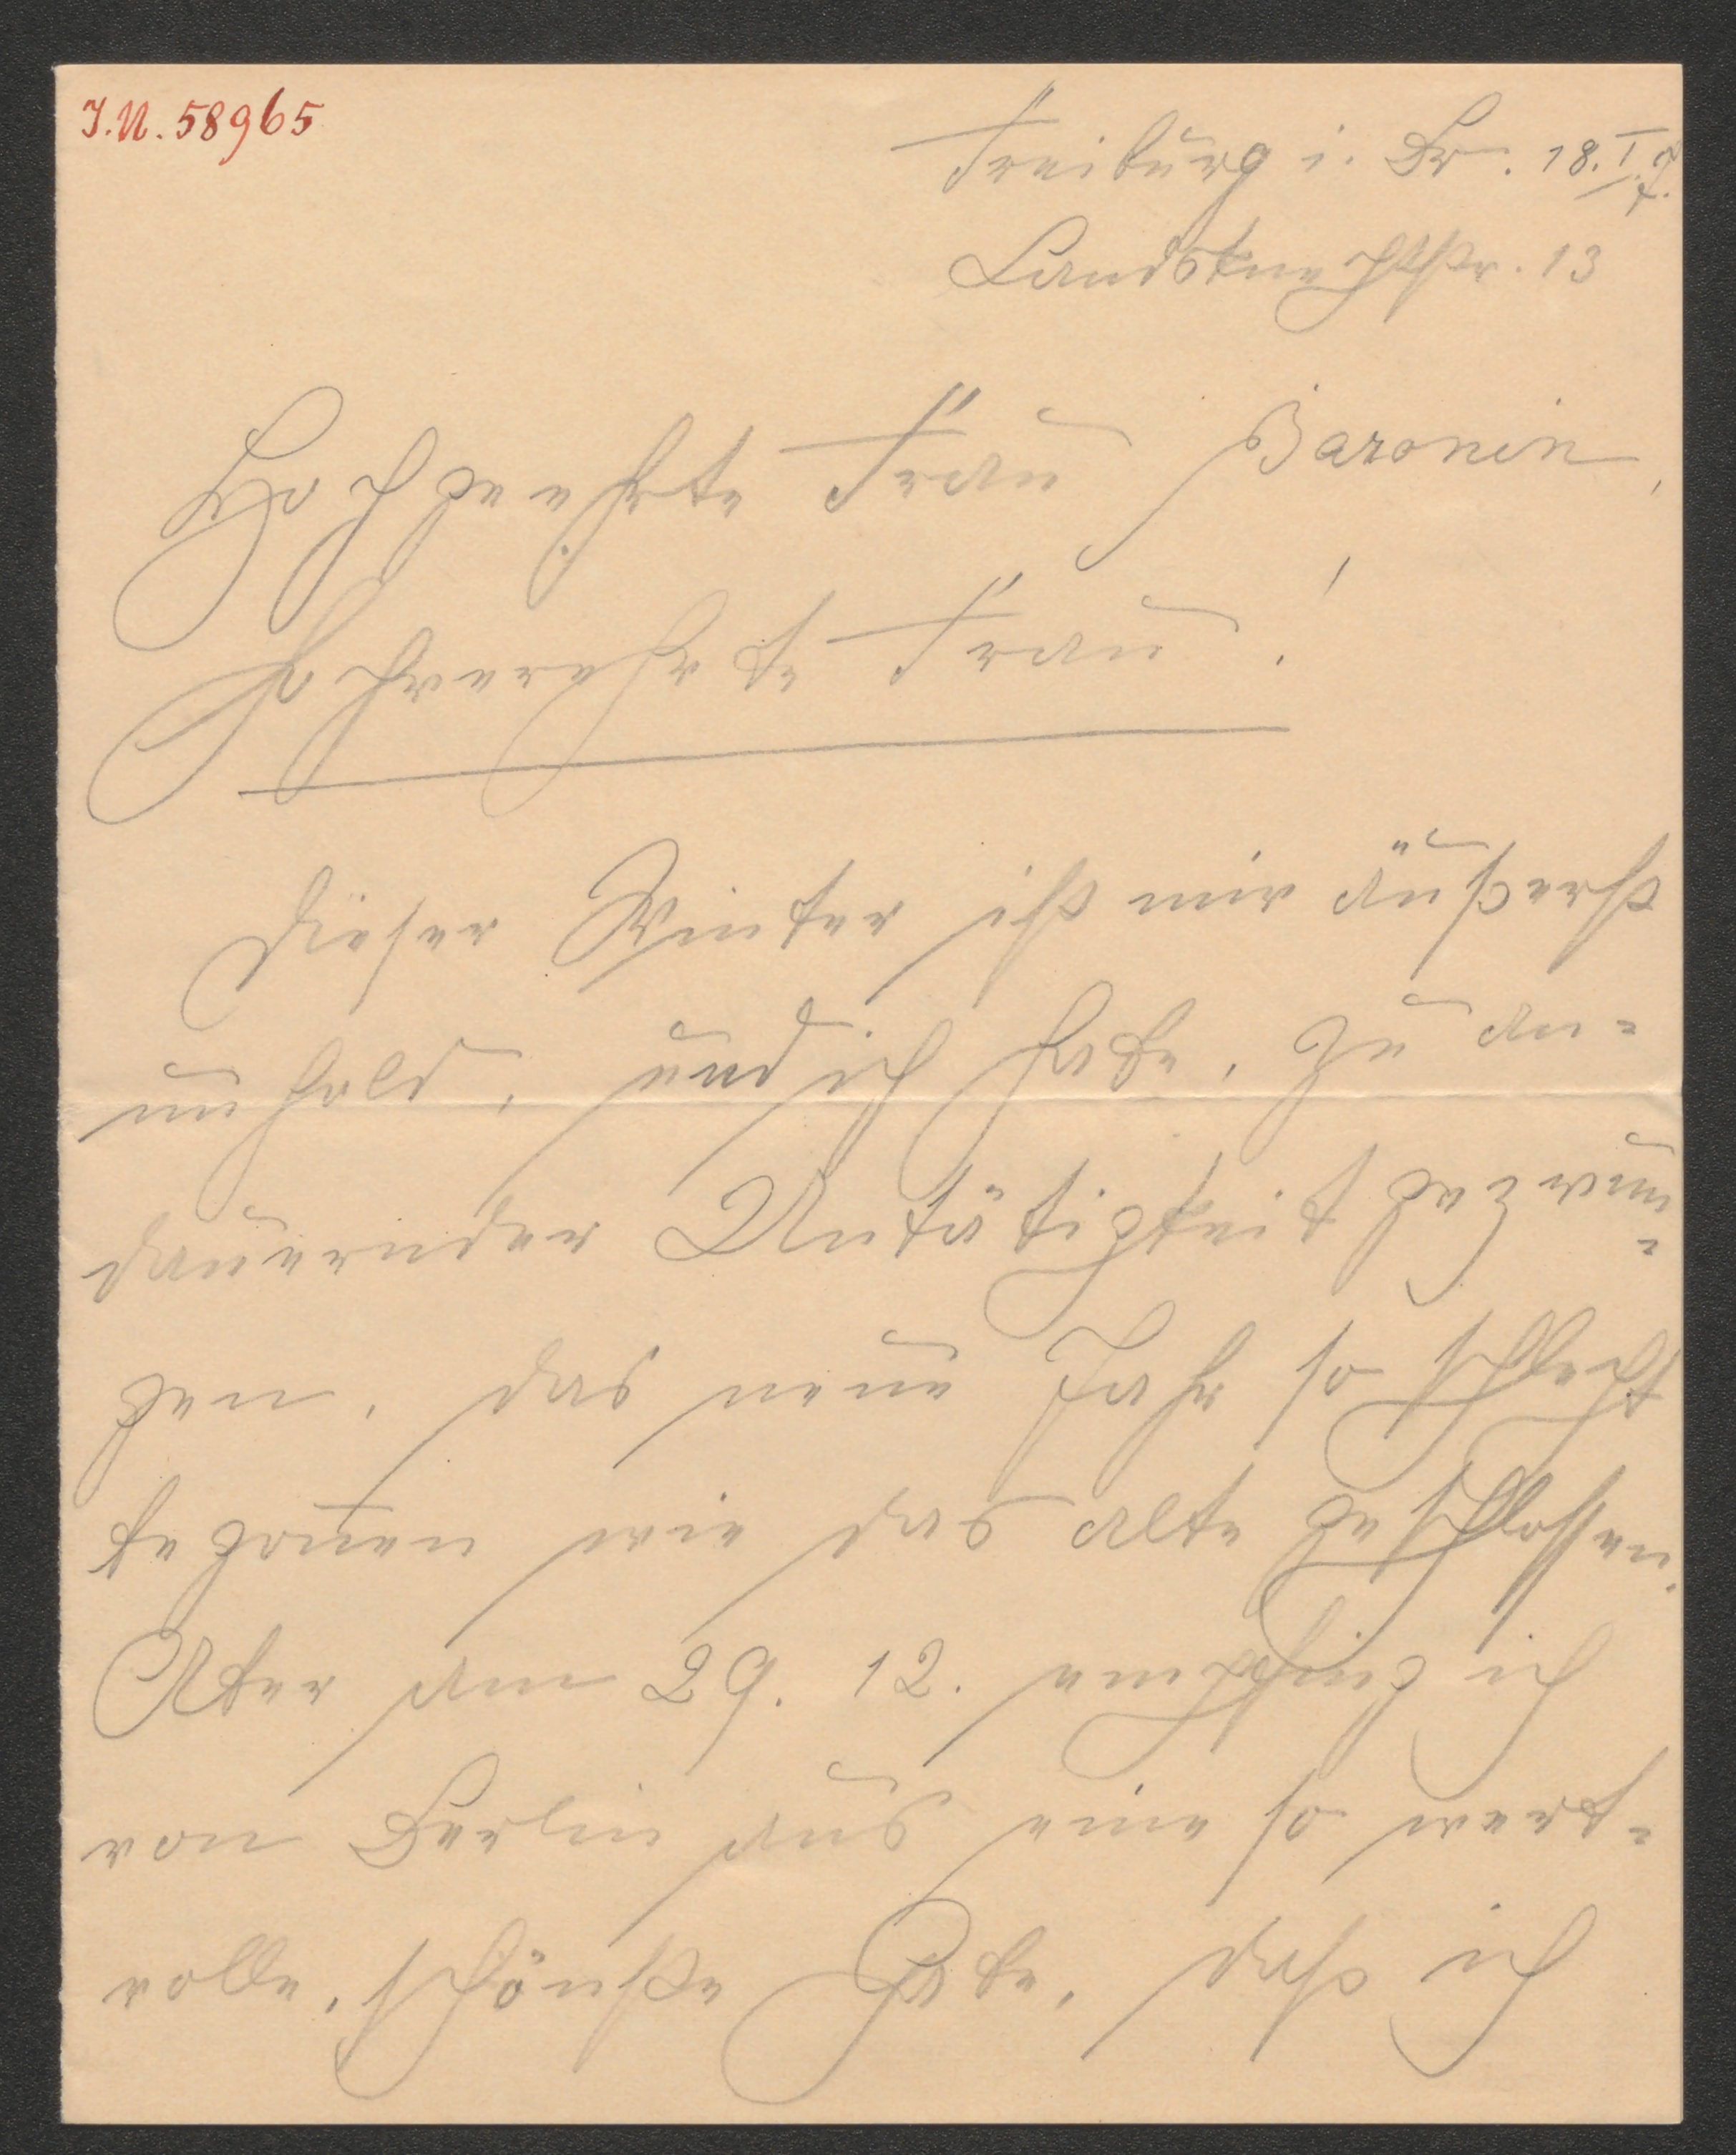 I.N. 58965
Freiburg i. Br. 18. I. 7.
Landsknechtstr. 13
Hochgeehrte Frau Baronin,
hochverehrte Frau!
Dieser Winter ist mir äußerst
unhold, und ich habe, zu an-
dauernder Untätigkeit gezwun-
gen, das neue Jahr so schlecht
begonnen wie das alte geschlossen.
Aber am 29. 12. empfing ich
von Berlin aus eine so wert-
volle, schönste Gabe, daß ich